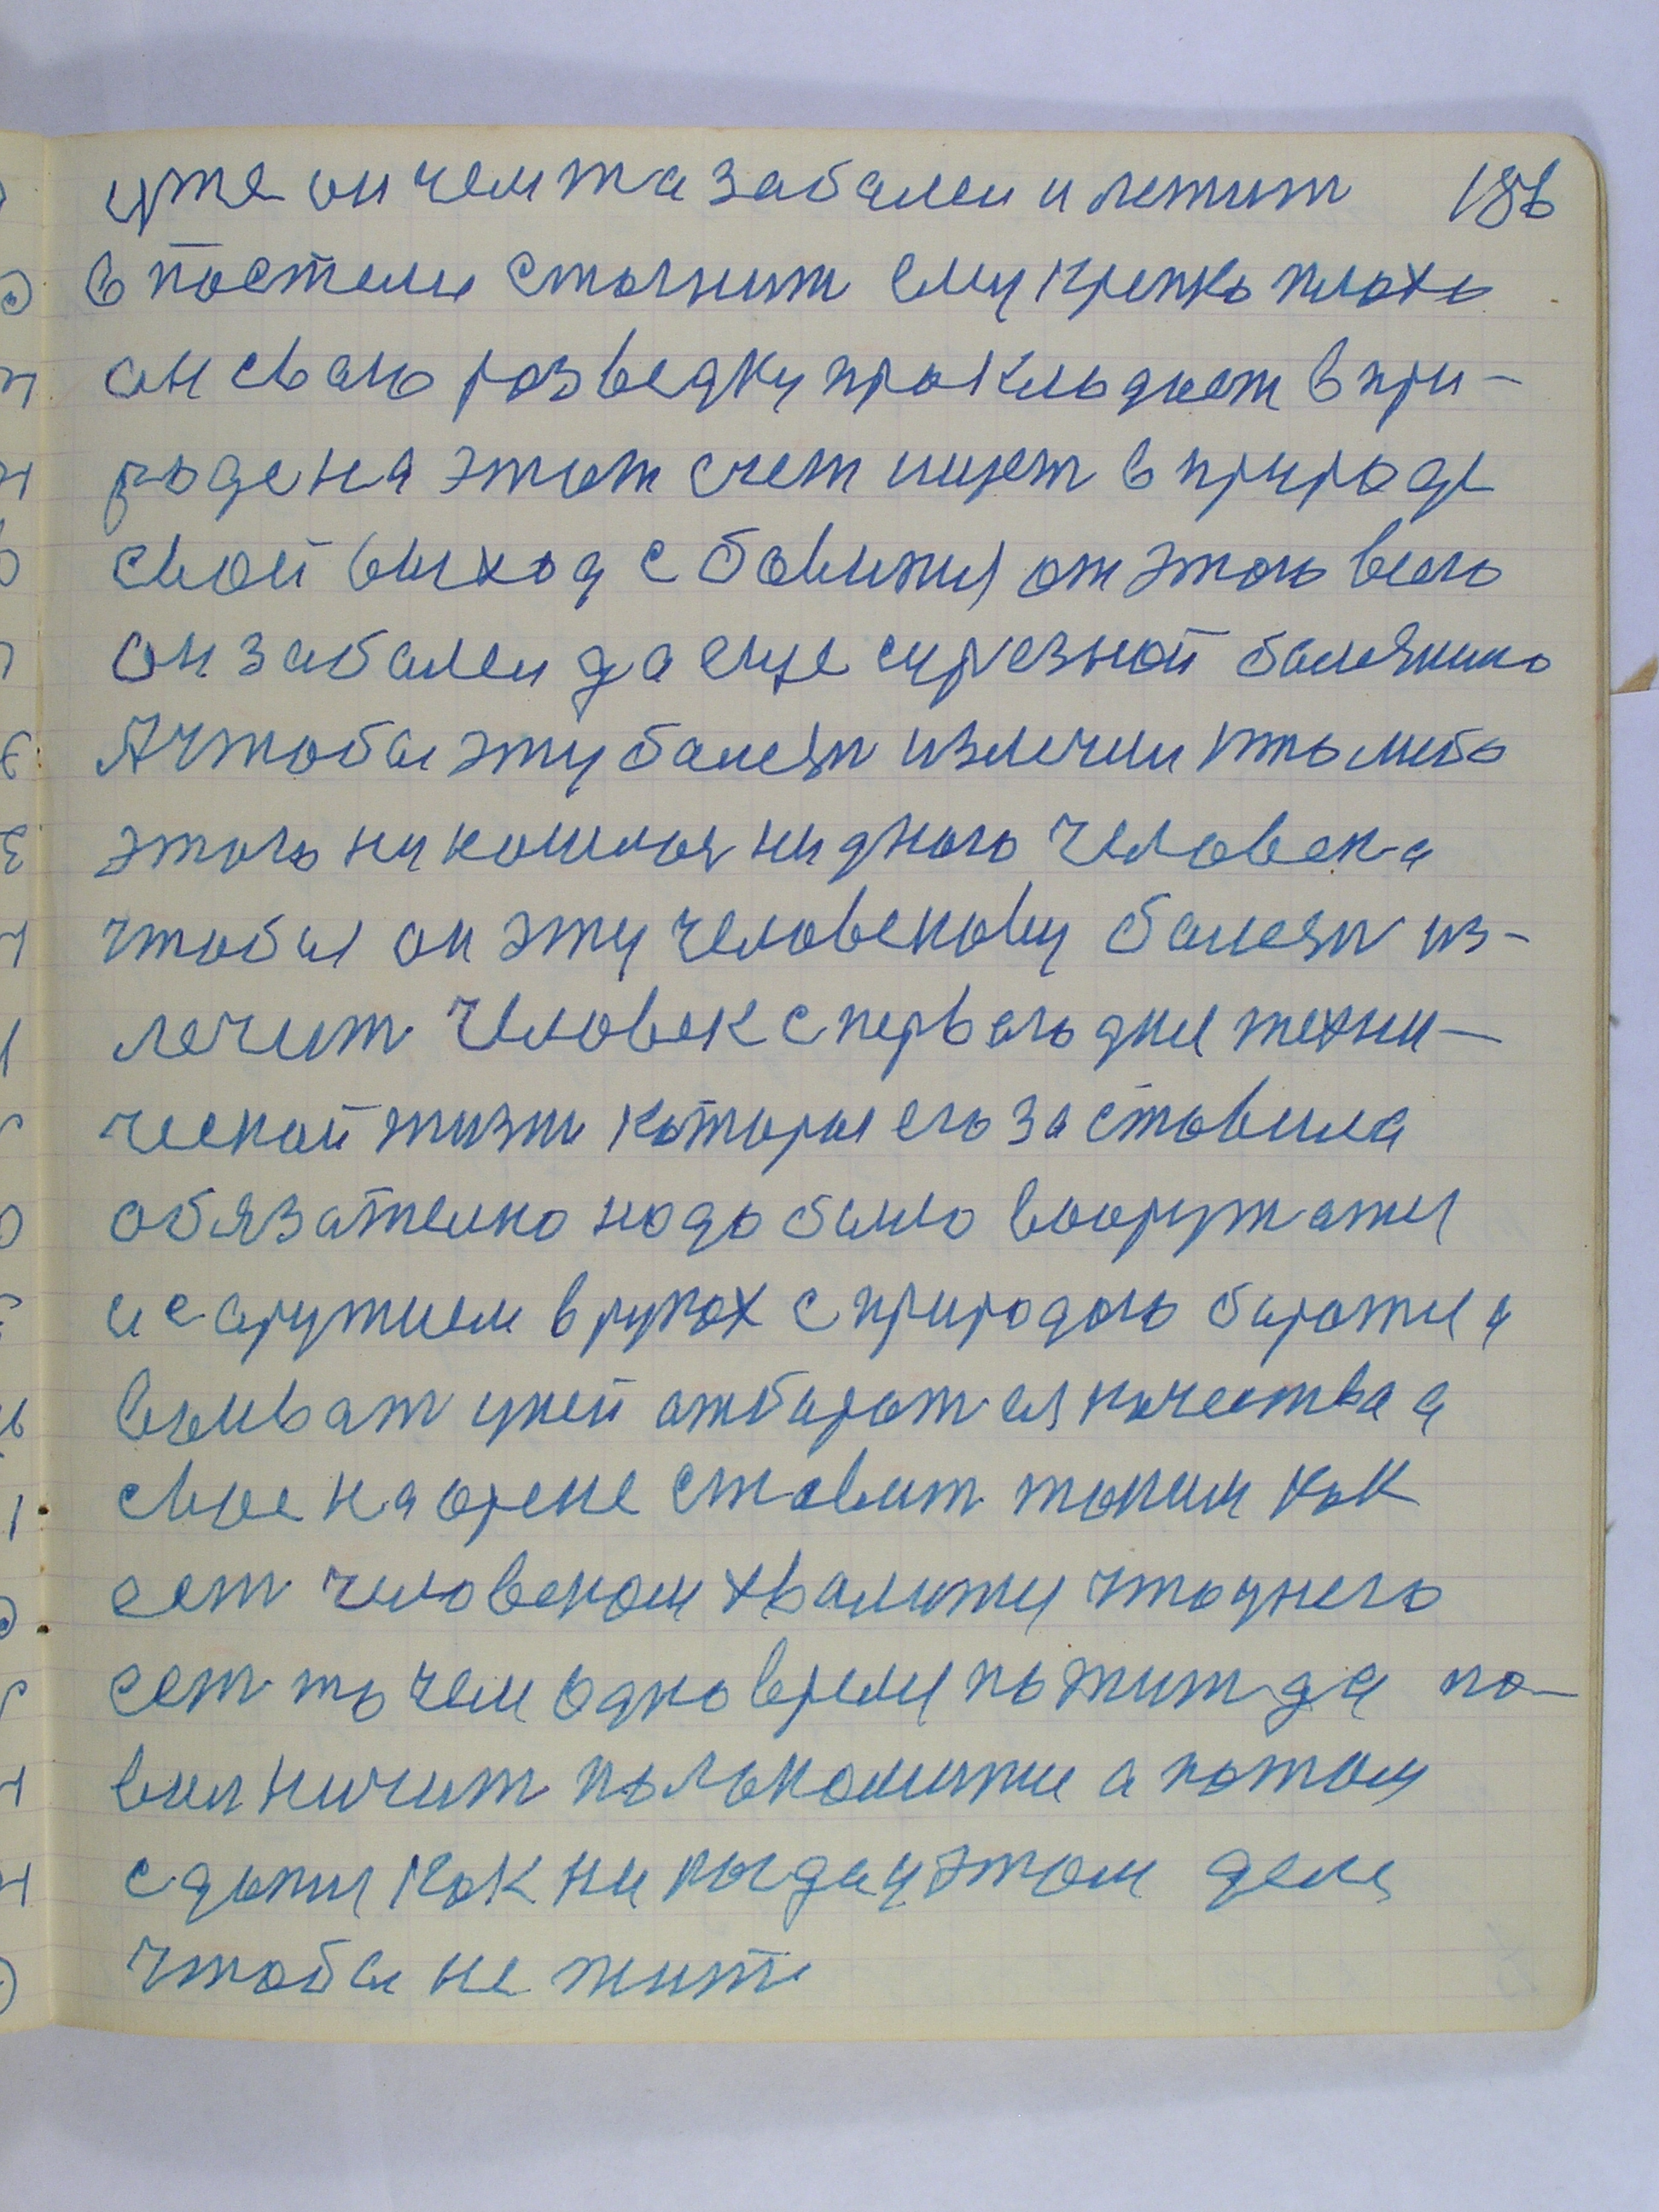 уже он чемта забалел и лежит 186
в постели стогнит ему крепко плохо
он сваю розведку прокльдует в при-
роде на этот счет ищет в природе
свой выход с бавится от этого всего
он забалел да еще сурезной балезнию
А чтобы эту балезн излечил ктолибо
этого ни нашлося ни дного человека
чтобы он эту человекову балезн из-
лечит Человек с первого дня техни-
ческой жизни каторыя его заставила
обязателно надо было вооружатся
и с оружием в руках с природою баротся а
ваиват у ней отбират ея качества а
свое на арене ставит таким как
ест человеком хвалится что у него
ест то чем одно время пожит да по-
величит польномится а потом
сдатся как никогда у этом деле
чтобы не жить